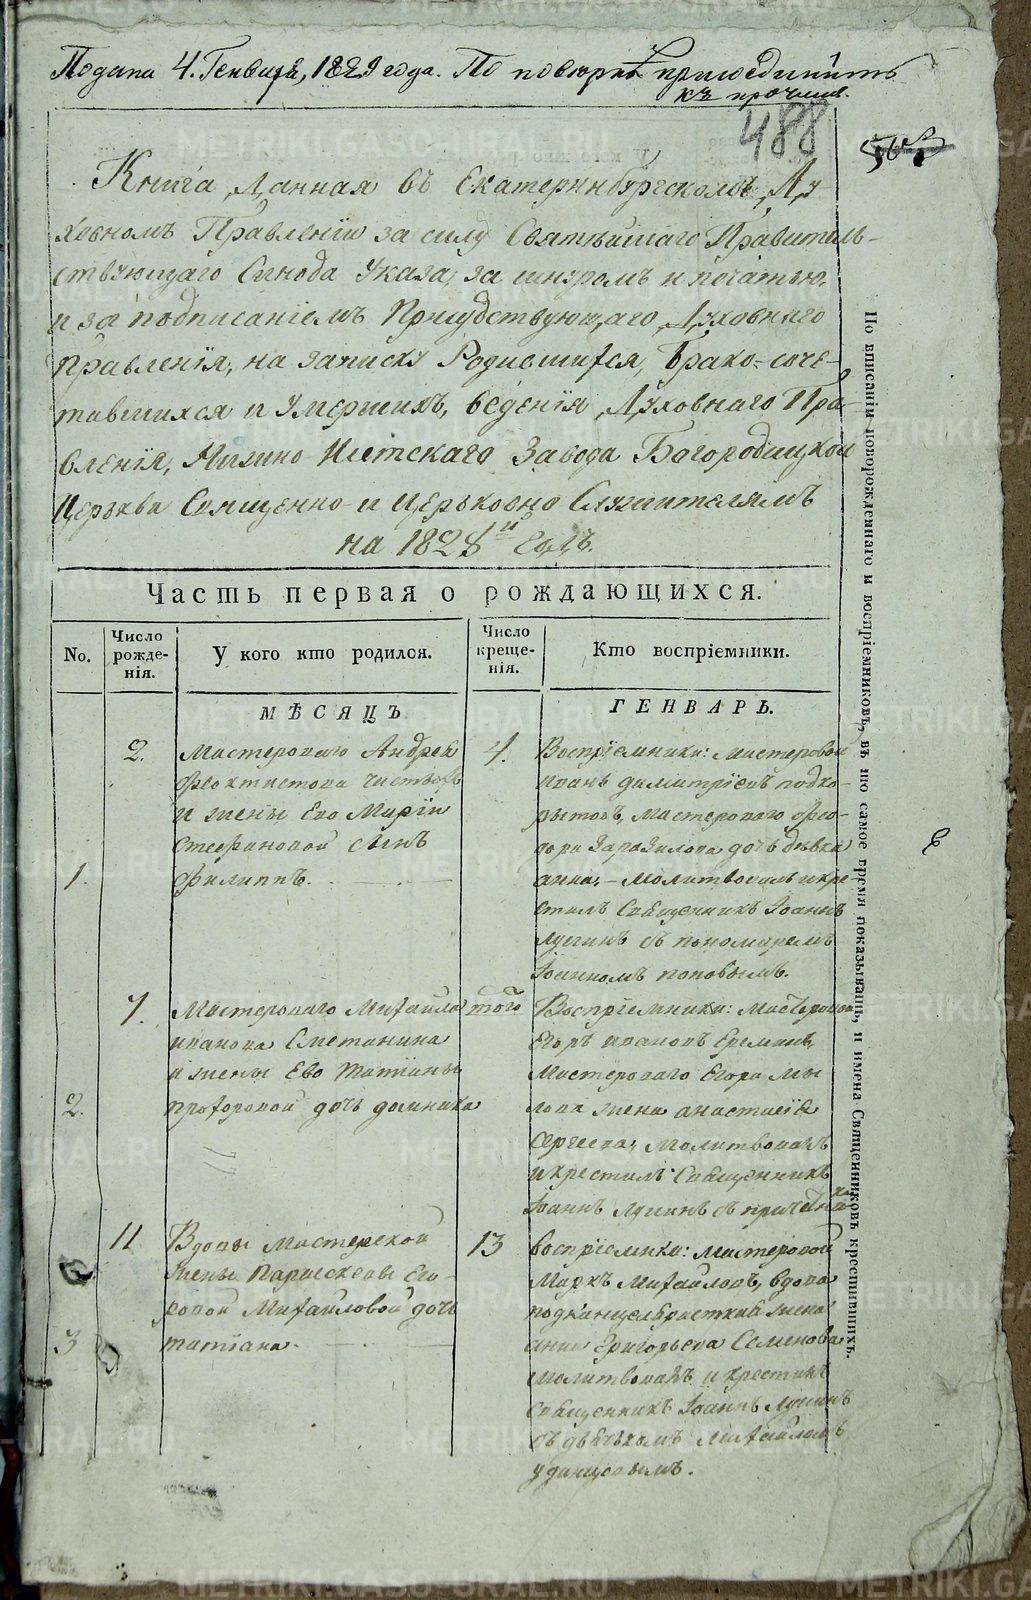 Подана 4. Генваря, 1829 года. По поверке приобщить
къ прочимъ.
488
Книга, Данная въ Екатеринбургскомъ, Ду
ховномъ Правленіи за силу Святѣйшаго Правитель-
ствующаго Синода Указа, за шнуромъ и печатью,
и за подписаніемъ Присудствующаго, Духовнаго
Правленія, на записку Родившихся, Брако-соче-
тавшихся и умершихъ, веденія, Духовнаго Пра
вленія, Нижно Исетскаго Завода Богородицкой
Церкви Священно- и Церьковно Служителямъ
на 1828й Годъ.
Часть первая о рождающихся.
No.
Число рожде-нія.
У кого кто родился.
Число креще-нія.
Кто воспріемники.
МѢСЯЦЪ
ГЕНВАРЬ.
1.
2.
Мастероваго Андрея
Феоктистова
и жены Его Маріи
Стефановой сынъ
Филиппъ.
4.
Воспріемники: Мастеровой
Иванъ Димитріевъ Подко-
рытовъ, Мастероваго Фео-
дора дочь девка
анна, – Молитвовалъ и кре-
стилъ Священникъ Іоаннъ
Лугинъ съ пономаремъ
Іоанномъ поповымъ.
2.
7.
Мастероваго Михайла
иванова Сметанина
и жены Ево Татіаны
прохоровой дочь домника
того
Воспріемники: Мастеровой
Егоръ ивановъ Ереминъ,
Мастероваго Егора Мы
лова жена анастасія
Сергеева, Молитвовалъ
и крестилъ Священникъ
Іоаннъ Лугинъ съ причетни
3
11
Вдовы Мастерской
жены Параскевы Его-
ровой Михайловой дочь
татіана.
13
воспріемники: Мастеровой
Маркъ Михайловъ, вдова
подканцеляристкая жена
анна Григорьева Семенова
молитвовалъ и крестилъ
Священникъ Іоаннъ Лугинъ
съ дьячкомъ Михайломъ
удинцовымъ.
По вписаніи новорожденнаго и воспріемниковъ, въ то самое время показывать, и имена Священниковъ крестившихъ.
METRIKI.GASO-URAL.RU